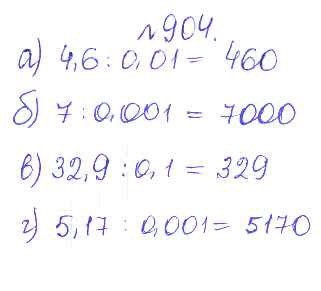 №904.
а) 4,6 : 0,01 = 460
б) 7 : 0,001 = 7000
в) 32,9 : 0,1 = 329
г) 5,17 : 0,001 = 5170